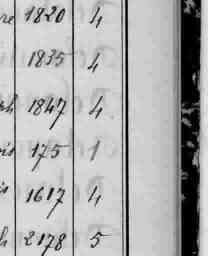 re 1820 4
1835 4
h 1847 4
175 1
1617 4
h 2178 5